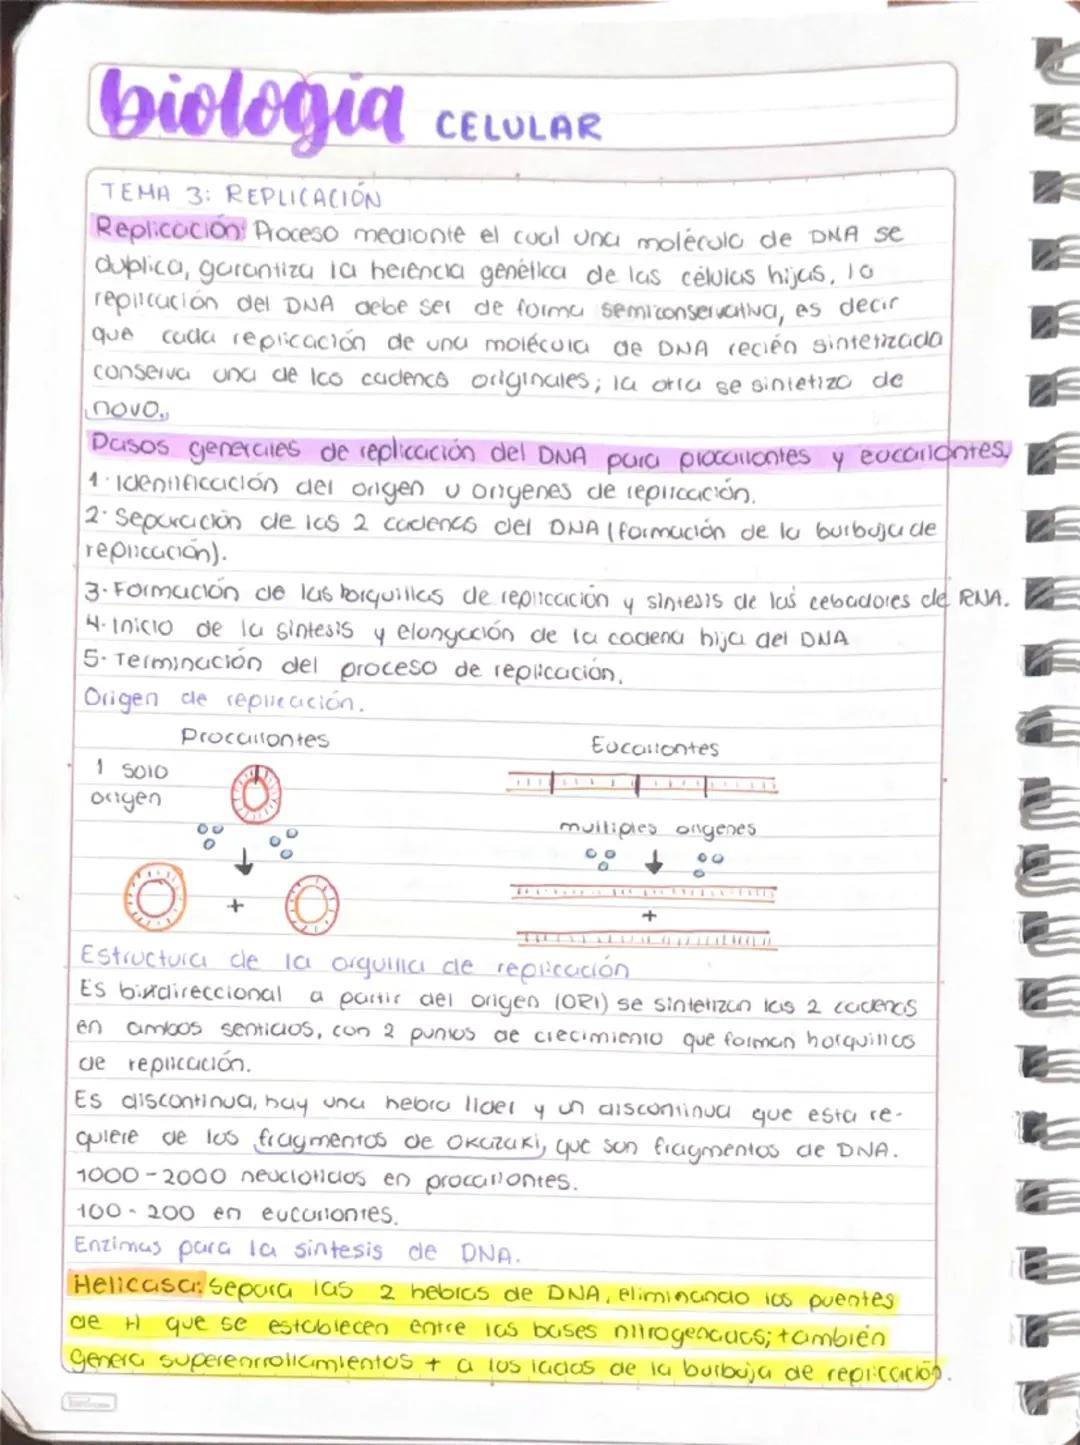 biología CELULAR
TEMA 3: REPLICACIÓN
Replicación: Proceso mediante el cual una molécula de DNA se
duplica, garantiza la herencia genética de las células hijas, la
replicación del DNA debe ser de forma semiconservativa, es decir
que cada replicación de una molécula de DNA recién sintetizada
conserva una de las cadenas originales; la otra se sintetiza de
novo.
Pasos generales de replicación del DNA para procariontes y eucariontes.
1. Identificación del origen u origenes de replicación.
2. Separación de las 2 cadenas del DNA (formación de la burbuja de
replicación).
3. Formación de las horquillas de replicación y sintesis de las cebadores de RNA.
4. Inicio de la sintesis y elongación de la cadena hija del DNA
5. Terminación del proceso de replicación.
Origen de replicación.
Procariontes Eucariontes
1 solo
origen
multiples origenes
+
+
Estructura de la orguilla de replicación
Es bidireccional a partir del origen (ORI) se sintetizan las 2 cadenas
en ambos sentidos, con 2 puntos de crecimiento que forman horquillas
de replicación.
Es discontinua, hay una hebra lider y un discontinua que esta re-
quiere de los fragmentos de Okazaki, que son fragmentos de DNA.
1000-2000 neucloticlos en procariontes.
100-200 en eucariontes.
Enzimas para la sintesis de DNA.
Helicasa: Separa las 2 hebras de DNA, eliminando los puentes
de H que se establecen entre las bases nitrogenadas; también
genera superenrrollamientos + a los lados de la burbuja de replicación.